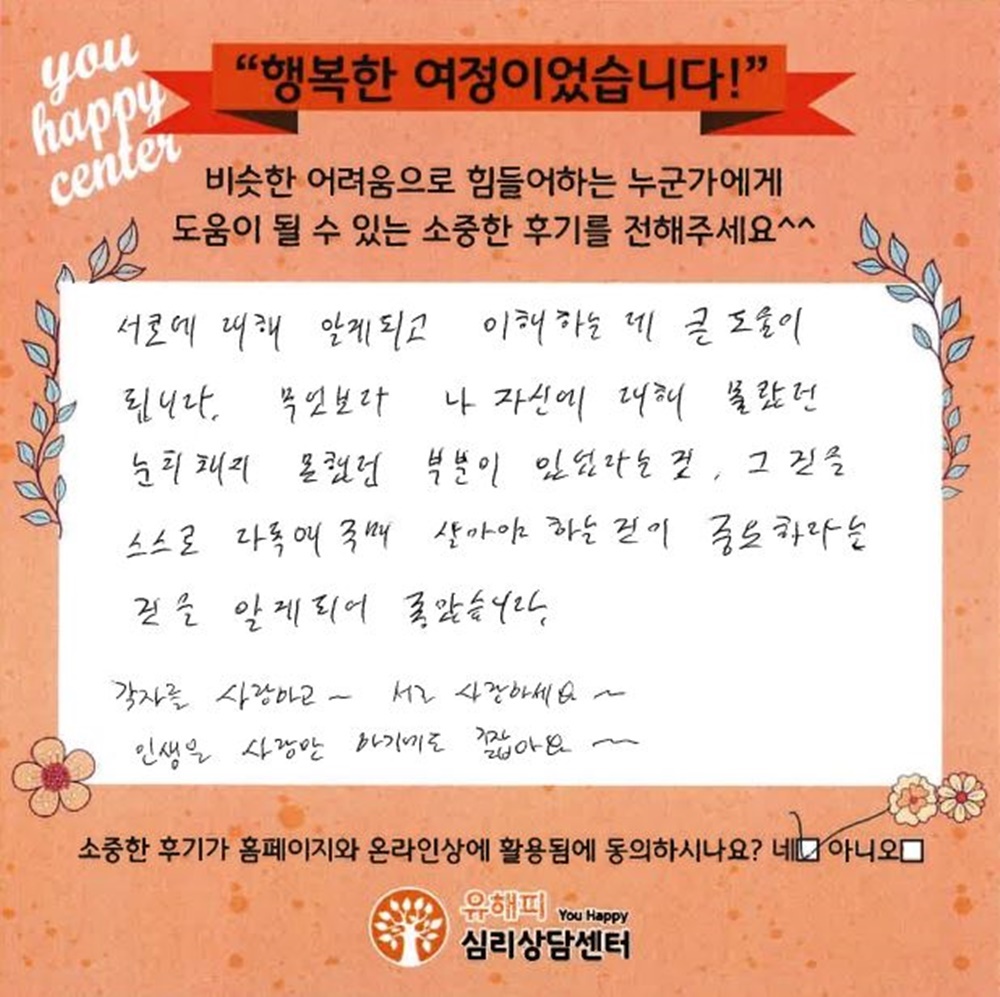 you
happy
center
“행복한 여정이었습니다!”
비슷한 어려움으로 힘들어하는 누군가에게
도움이 될 수 있는 소중한 후기를 전해주세요^^
서로에 대해 알게되고 이해하는 데 큰 도움이
됩니다. 무엇보다 나 자신에 대해 몰랐던
눈치채지 못했던 부분이 있었다는 것, 그 것을
스스로 다독여주며 살아야 하는 것이 중요하다는
것을 알게되어 좋았습니다.
각자를 사랑하고~ 서로 사랑하세요~
인생은 사랑만 하기에도 짧아요~
소중한 후기가 홈페이지와 온라인상에 활용됨에 동의하시나요? 네 아니오
유해피 You Happy
심리상담센터